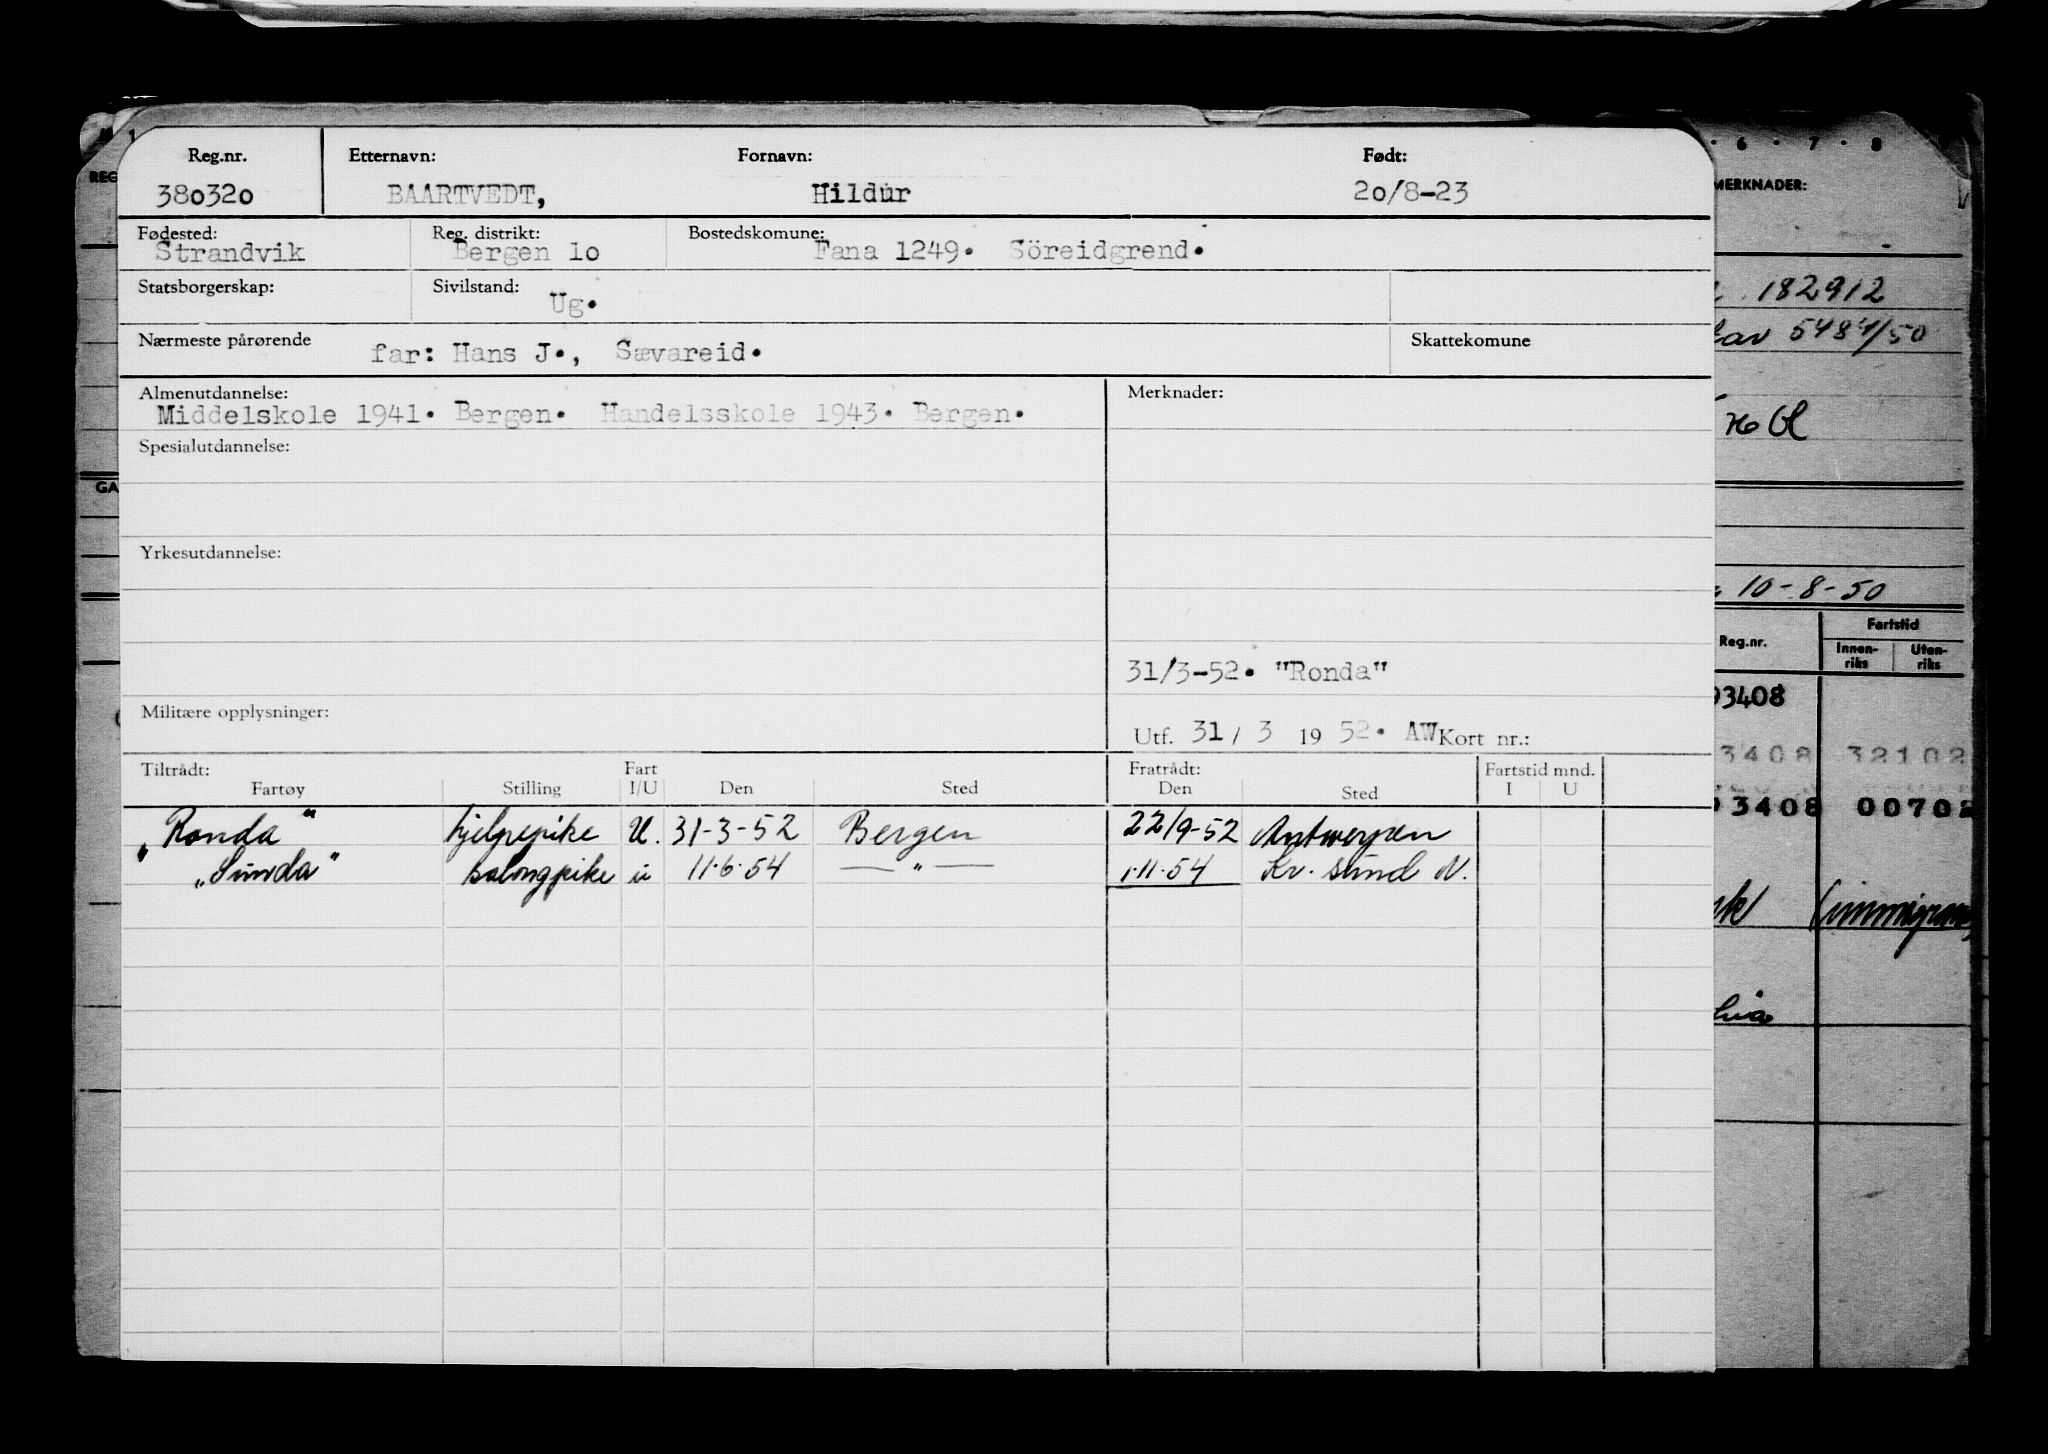 Reg.nr. Etternavn: Fornavn: Født:
380320 BAARTVEDT, Hildur 20/8-23
Fødested: Reg. distrikt: Bostedskomune:
Strandvik Bergen 10 Fana 1249. Söreidgrend.
Statsborgerskap: Sivilstand:
Ug.
Nærmeste pårørende Skattekomune
far: Hans J., Sævareid.
Almenutdannelse: Merknader:
Middelskole 1941. Bergen. Handelsskole 1943. Bergen.
Spesialutdannelse:
Yrkesutdannelse:
31/3-52. "Ronda"
Militære opplysninger:
Utf. 31 / 3 19 52. AW Kort nr.:
Tiltrådt: Fart Fratrådt: Fartstid mnd.
Fartøy Stilling I/U Den Sted Den Sted I U
„Ronda" hjelpepike U. 31-3-52 Bergen 22/9-52 Antwerpen
„Sunda" salongpike u 11.6.54 — " — 1.11.54 Kr. sund N.
6 7 8
MERKNADER:
182912
5484/50
10-8-50
Fartstid
Reg.nr. Innen-riks Uten-riks
3408
3408 32102
3408 0070
REG
GA